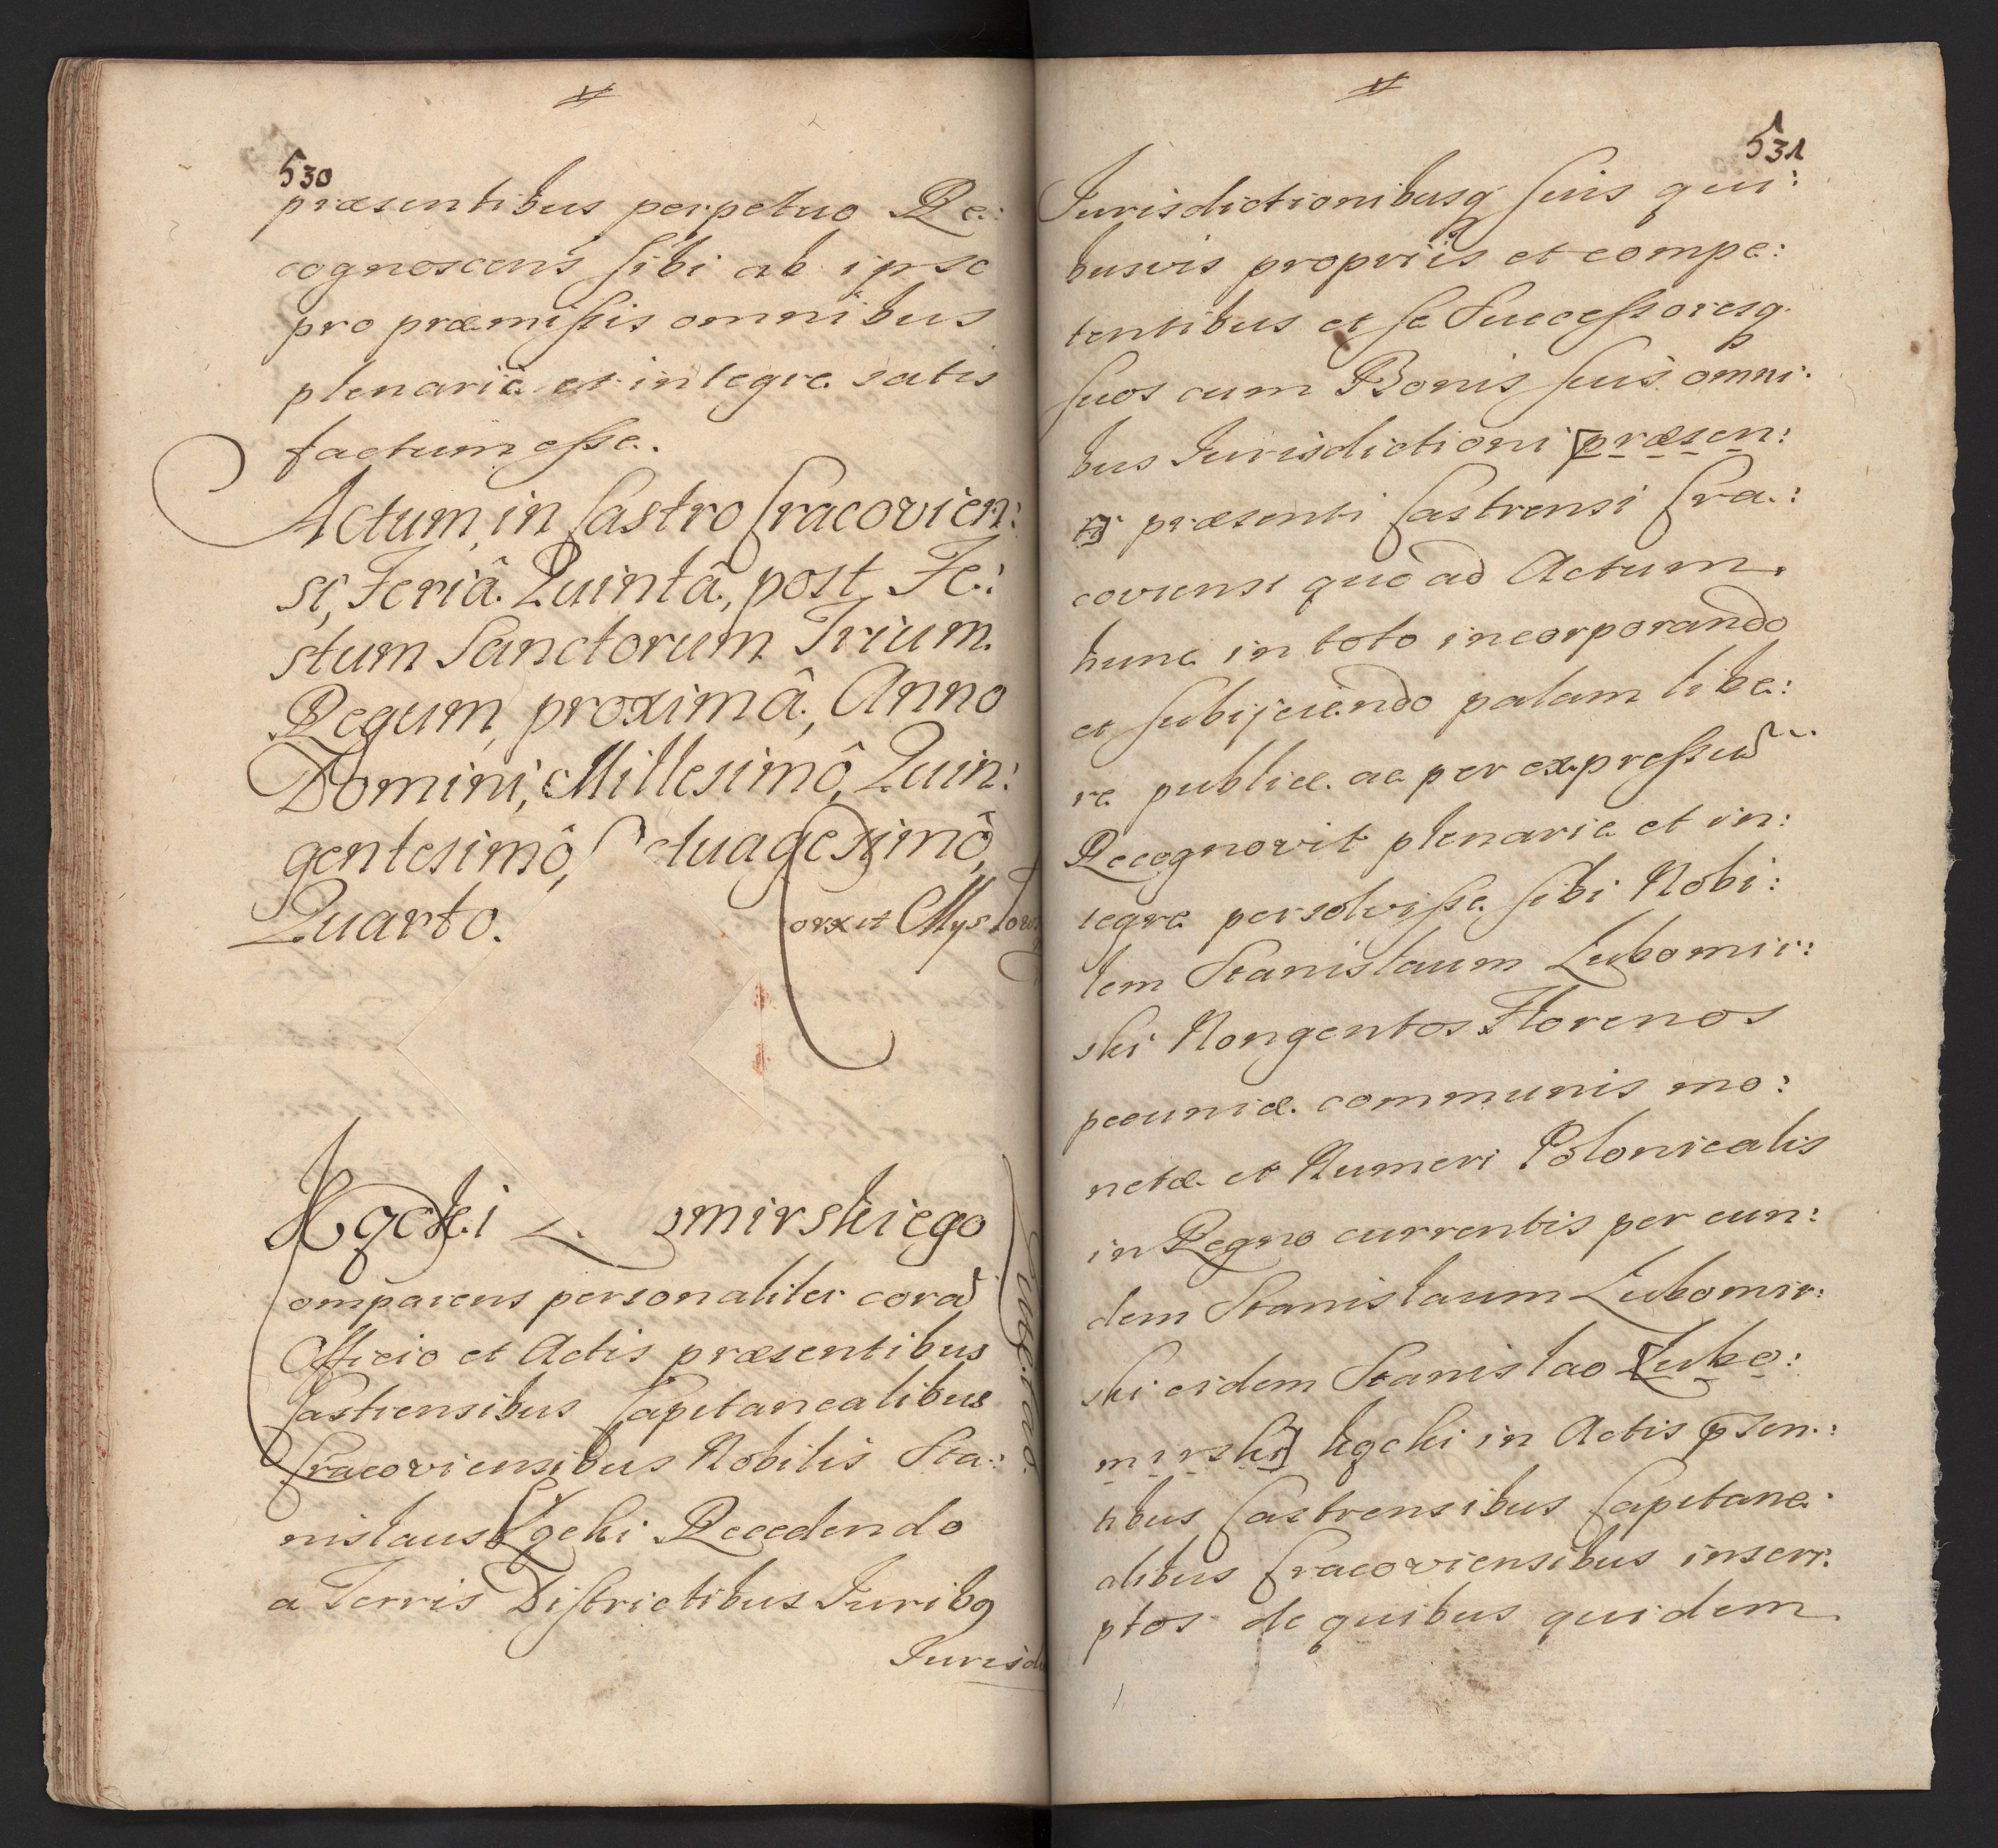 530
præsentibus perpetuo Re:
cognoscens sibi ab ipso
pro præmissis omnibus
plenarie et integre satis
factum esse.
Actum, in Castro Cracovien:
si, Feriâ Quintâ, post Fe:
stum Sanctorum Trium
Regum, proximâ, Anno
Domini, Millesimô, Quin:
gentesimô, ctuagesimô,
Quarto.
omirskiego
omparens personaliter corã
Officio et Actis præsentibus
Castrensibus Capitanealibus
Cracoviensibus Nobilis Sta:
nislaus Kgcki Recedendo
a Terris Districtibus Juribq
Jurisd
531
Jurisdictionibusq suis qui:
busvis propriis et compe:
tentibus et se Successoresq
suos cum Bonis suis omni:
bus Jurisdictioni [præsen:
ti] præsenti Castrensi Cra:
coviensi quo ad Actum
hunc in toto incorporando
et subijciendo palam libe:
re publice ac per expressũ
Recognovit plenarie et in:
tegre persolvisse sibi Nobi:
lem Stanislaum Lubomir:
ski Nongentos Florenos
pecuniæ communis mo:
netæ et Numeri Polonicalis
in Regno currentis per eun:
dem Stanislaum Lubomir:
ski eidem Stanislao [Lubo:
mirski] kgcki in Actis psen:
tibus Castrensibus Capitane:
alibus Cracoviensibus inscri:
ptos de quibus quidem